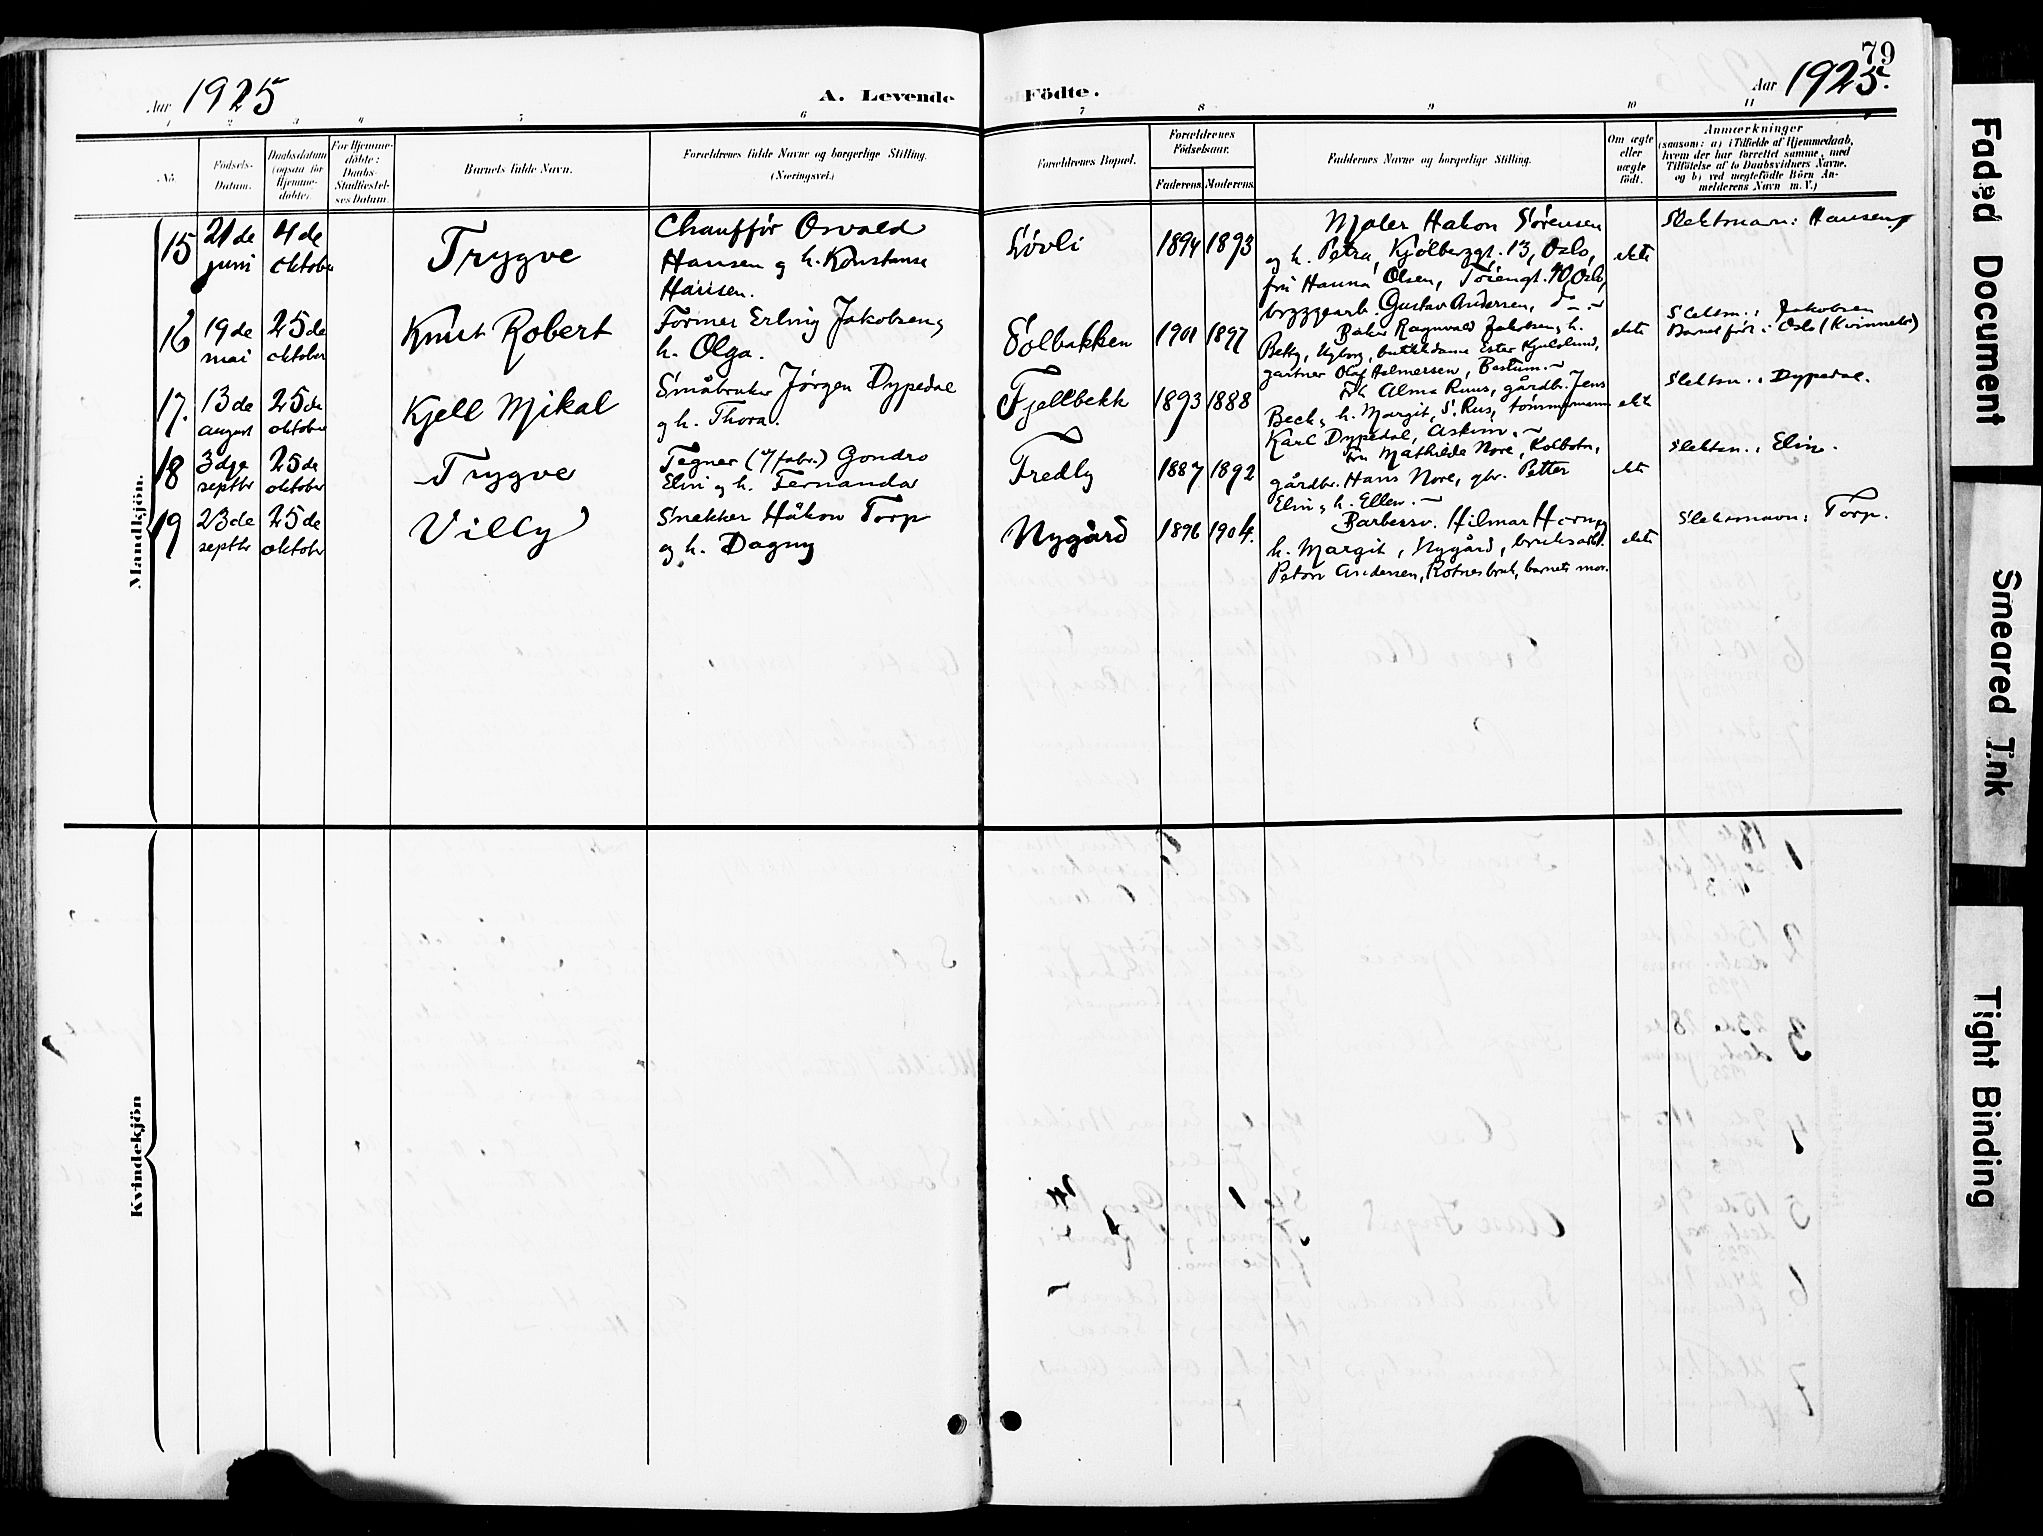 79
Aar 1925
A. Levende Födte.
Aar 1925.
1 2 3 4 5 6 7 8 9 10 11
No.
Födsels-Datum.
Daabsdatum (ogsaa for Hjemme-döbte).
For Hjemme-döbte: Daabs-Stadfæstel-ses Datum.
Barnets fulde Navn.
Forældrenes fulde Navne og borgerlige Stilling.
(Næringsvei.)
Forældrenes Bopæl.
Forældrenes Födselsaar.
Faderens. Moderens.
Faddernes Navne og borgerlige Stilling.
Om ægte eller uægte født.
Anmærkninger
(saasom: a) i Tilfælde af Hjemmedaab,
hvem der har forrettet samme, med
Tilföielse af to Daabsvidners Navne.
og b) ved uægtefödte Börn An-
melderens Navn m. V.)
Mandkjön.
15
21de juni
4de oktober
Trygve
Chauffør Osvald
Hansen og h. Konstanse
Hansen.
Løvli
1894 1893
Maler Hakon Sørensen
og h. Petra, Kjölberggt. 13, Oslo,
fru Hanna Olsen, Töiengt. 10, Oslo,
byggearb. Gustav Andersen,
ekte
Slektsnavn: Hansen
16
19de mai
25de oktober
Knut Robert
Former Erling Jakobsen og
h. Olga.
Solbakken
1901 1897
Baker Ragnvald Jakobsen, h.
Betty, Nyborg, butikkdame Ester
gartner Olaf Helmersen, Bestum.
ekte
Slektsn.: Jakobsen
Barnet født i Oslo (Kvinnekl.)
17.
13de august
25de oktober
Kjell Mikal
Småbruker Jørgen Dypedal
og h. Thora.
Fjellbekk
1893 1888
Frk Alma Ruus, gårdbr. Jens
Beck, h. Margit, S. Rus, tømmermann
Karl Dypedal, Askim.
ekte
Slektsn.: Dypedal.
18
3dje septbr
25de oktober
Trygve
Tegner (v/fabr.) Gondro
Elin og h. Fernanda
Fredly
1887 1892
Fru Mathilde Nore, Kolbotn,
gårdbr. Hans Nore, gbr. Petter
Elin, h. Ellen.
ekte
Slektsn.: Elin.
19
23de septbr
25de oktober
Villy
Snekker Håkon Torp
og h. Dagny
Nygård
1896 1904.
Barbersv. Hilmar
h. Margit, Nygård, bruksarb.
Peton Andersen, Rotnes bruk, barnets mor.
ekte
Slektsnavn: Torp.
Kvindekjön
Faded Document
Smeared Ink
Tight Binding